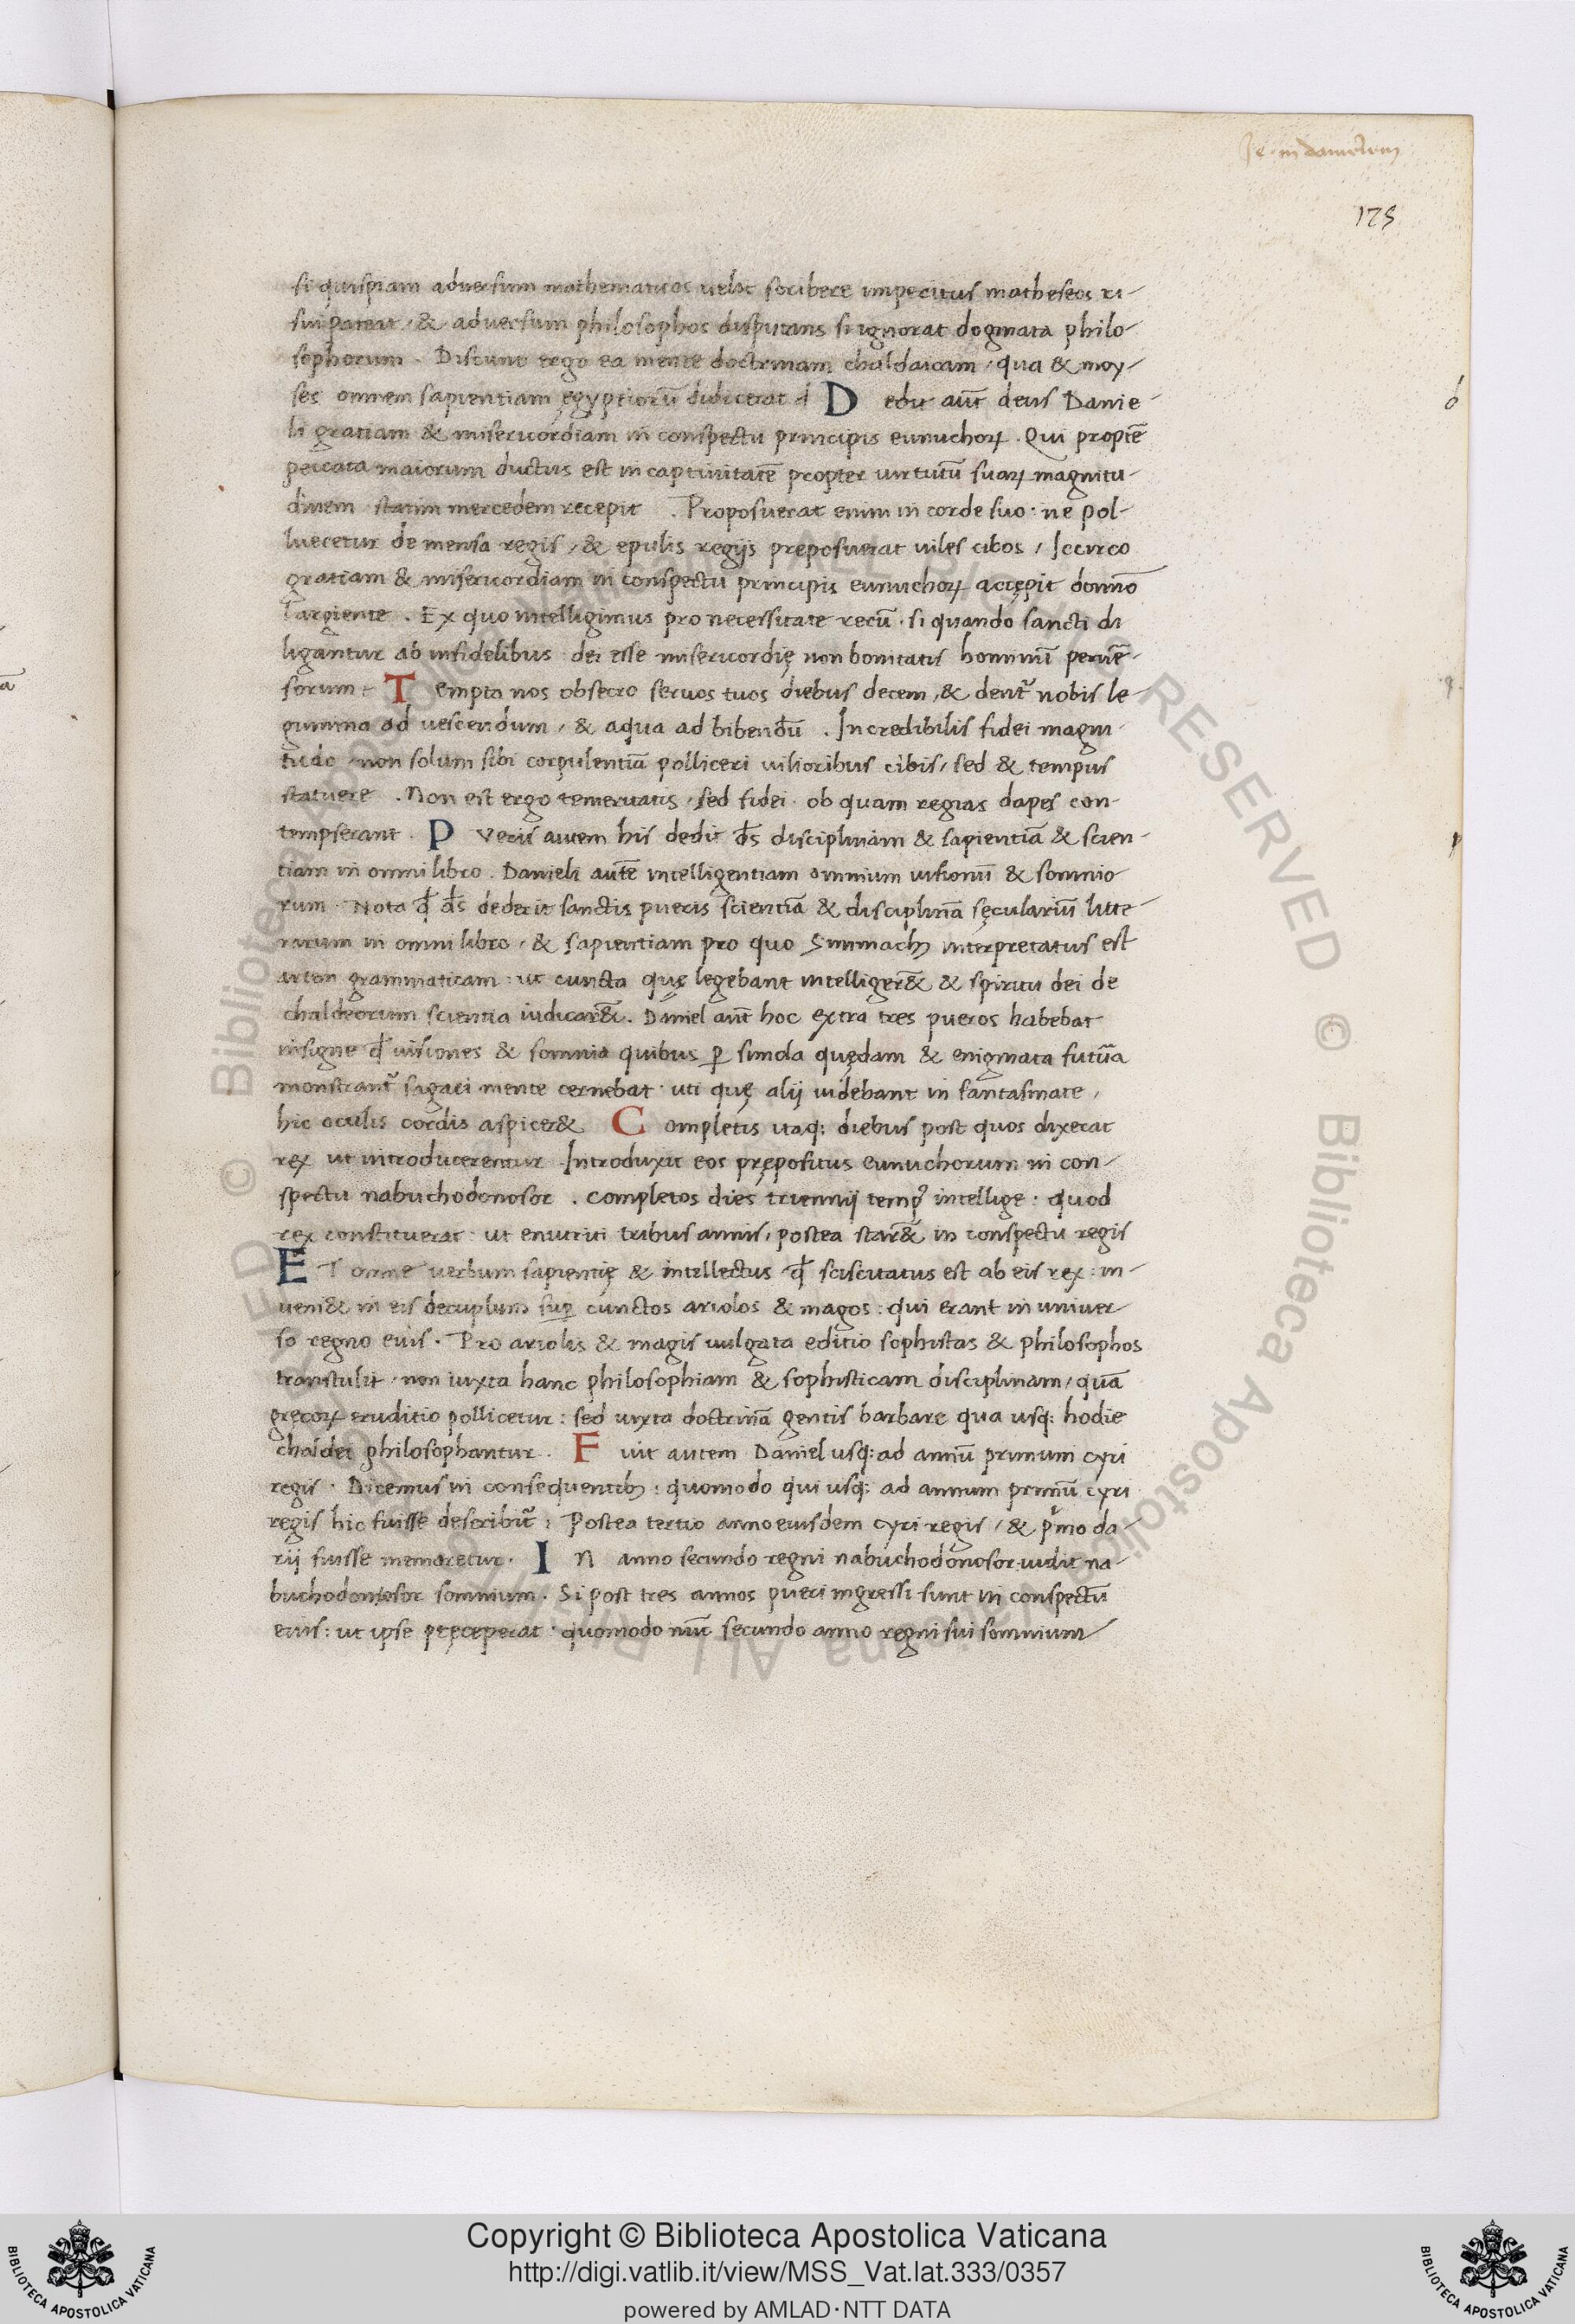 Je in danielem
175
si quispiam adversum mathematicos velit scribere imperitus matheseos ri-
sui pateat, & adversum philosophos disputans si ignorat dogmata philo-
sophorum. Discunt ergo ea mente doctrinam chaldaicam, qua & moy-
ses omnem sapientiam ęgyptiorū didicerat D edit aūt deus Danie-
li gratiam & misericordiam in conspectu principis eunuchoꝝ. Qui proptē
peccata maiorum ductus est in captivitatē propter virtutū suaꝝ magnitu-
dinem statim mercedem recepit. Proposuerat enim in corde suo: ne pol-
lueretur de mensa regis, & epulis regijs preposuerat viles cibos, Iccirco
gratiam & misericordiam in conspectu principis eunuchoꝝ accępit domīo
largiente. Ex quo intelligimus pro necessitate rerū. si quando sancti di
ligantur ab infidelibus dei esse misericordię non bonitatis hominū pervē-
sorum: T empta nos obsecro servos tuos diebus decem, & dent᷑ nobis le
gumina ad vescendum, & aqua ad bibendū. Incredibilis fidei magni-
tudo, non solum sibi corpulentiā polliceri vilioribus cibis, sed & tempus
statuere. Non est ergo temeritatis, sed fidei. ob quam regias dapes con-
tempserant. P veris autem his dedit d̄s disciplinam & sapientiā & scien-
tiam in omni libro. Danieli autē intelligentiam omnium visionū & somnio
rum. Nota q̄ d̄s dederit sanctis pueris scientiā & disciplinā sęculariū litte-
rarum in omni libro, & sapientiam pro quo Simmachꝰ interpretatus est
arten grammaticam: ut cuncta quę legebant intelliger̄& & spiritu dei de
chaldeorum scientia iudicar̄&. Daniel aūt hoc extra tres pueros habebat
insigne q̄ visiones & somnia quibus ꝑ simila quędam & enigmata futūa
monstrant᷑ sagaci mente cernebat. uti quę alij videbant in fantasmate,
hic oculis cordis aspicer& C ompletis itaq; diebus post quos dixerat
rex ut introducerentur. Introduxit eos prępositus eunuchorum in con-
spectu nabuchodonosor. completos dies triennij tempꝰ intellige: quod
rex constituerat: ut enutriti tribus annis, postea star̄& in conspectu regis
E T omne verbum sapientię & intellectus q̄ sciscitatus est ab eis rex: in-
veni& in eis decuplum suꝑ cunctos ariolos & magos: qui erant in univer-
so regno eius. Pro ariolis & magis vulgata editio sophistas & philosophos
transtulit, non iuxta hanc philosophiam & sophisticam disciplinam, quā
grecoꝝ eruditio pollicetur: sed iuxta doctrinā gentis barbare qua usq; hodie
chaldei philosophantur. F uit autem Daniel usq; ad annū primum cyri
regis. Dicemus in consequentibꝫ: quomodo qui usq; ad annum primū cyri
regis hic fuisse describit᷑: Postea tertio anno eiusdem cyri regis, & pͥmo da-
rij fuisse memoretur. I N anno secundo regni nabuchodonosor vidit na-
buchodonosor somnium. Si post tres annos pueri ingressi sunt in conspectū
eius: ut ipse pręceperat. quomodo nūc secundo anno regni sui somnium
Copyright © Biblioteca Apostolica Vaticana
http://digi.vatlib.it/view/MSS_Vat.lat.333/0357
powered by AMLAD·NTT DATA
BIBLIOTECA APOSTOLICA VATICANA
BIBLIOTECA APOSTOLICA VATICANA